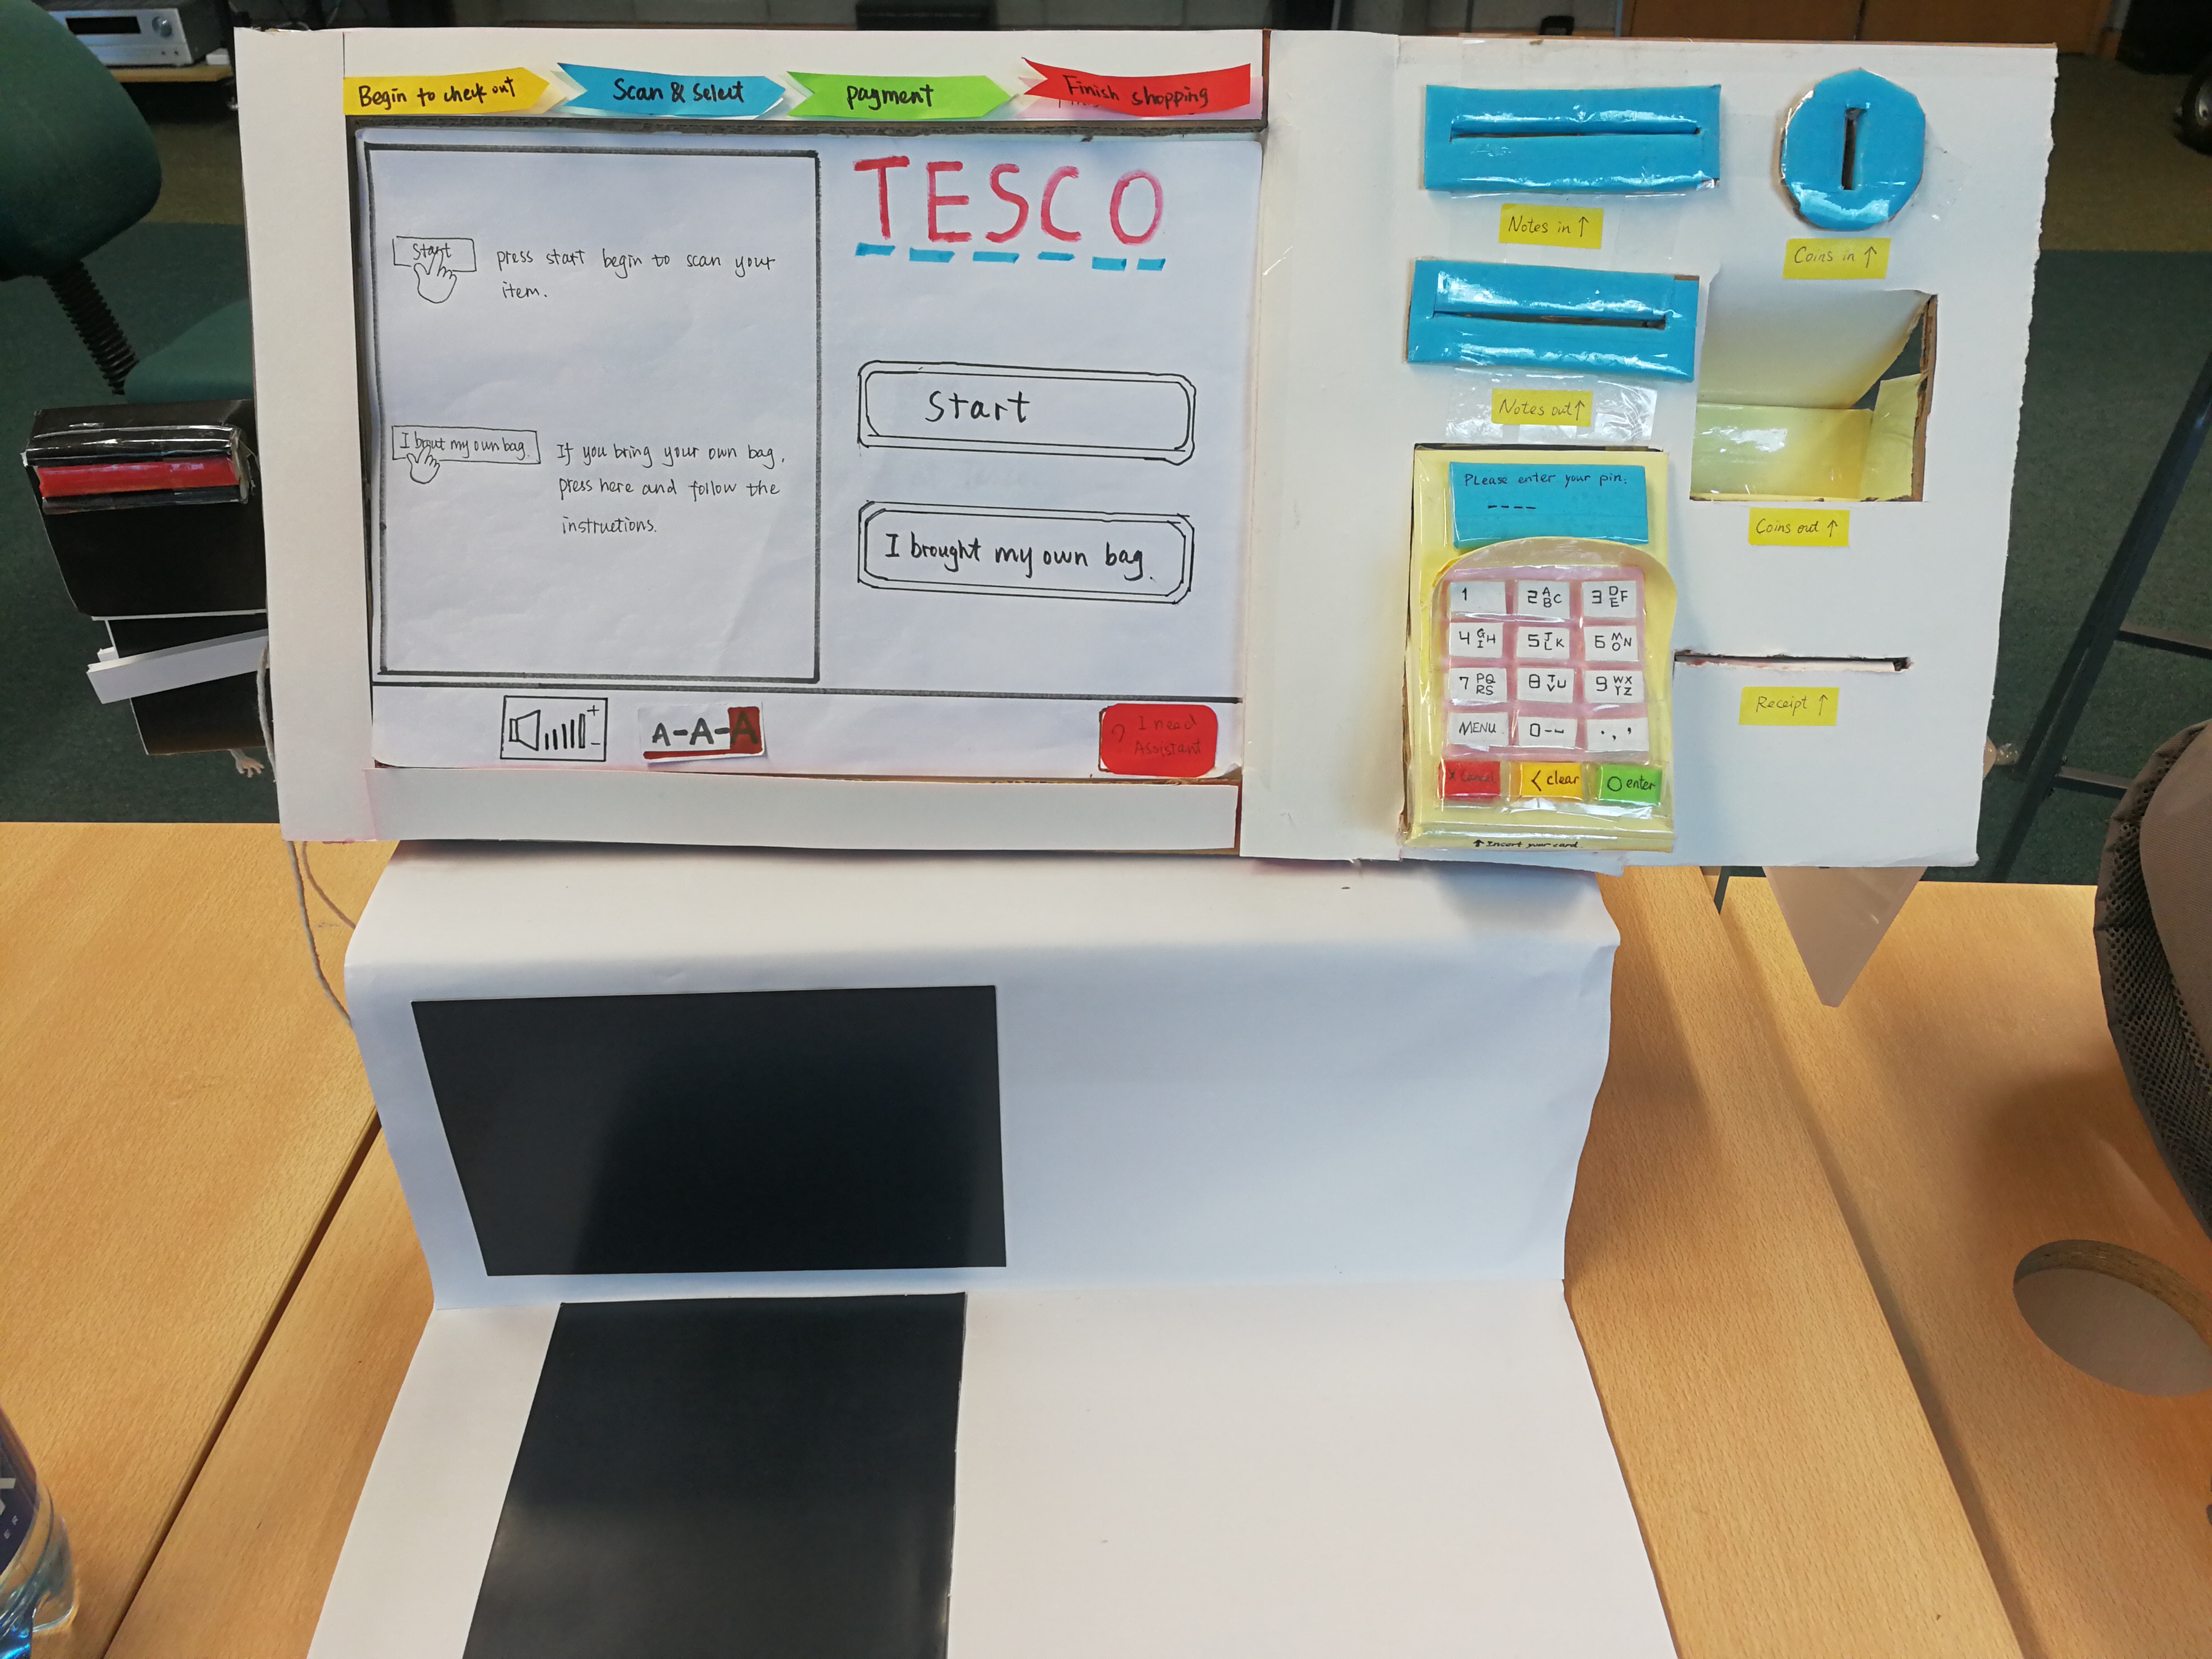 Begin to check out
Scan & Select
payment
Finish shopping
TESCO
Start
press start begin to scan your
item.
I brout my own bag.
If you bring your own bag,
press here and follow the
instructions.
Start
I brought my own bag.
+
-
A-A-A
? I need
Assistant
Notes in ↑
Coins in ↑
Notes out ↑
Coins out ↑
Receipt ↑
PLease enter your pin:
----
1
2 ABC
3 DEF
4 GHI
5 JKL
6 MNO
7 PQRS
8 TUV
9 WXYZ
MENU
0--
. , '
X Cancel
< clear
O enter
↑ Insert your card